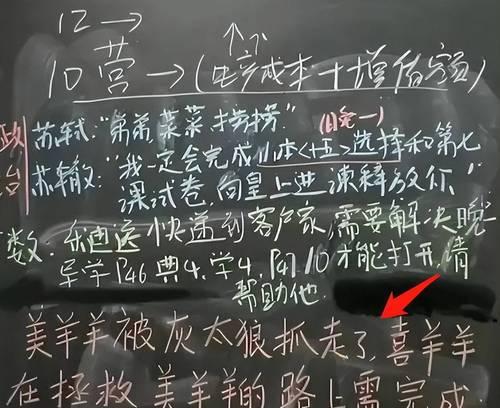 12 →
↑
10 营 → (生产成本 + 增值额)
苏轼:“弟弟,菜菜,捞捞。”(日晚一)
政 苏辙:“我一定会完成小本<十五>选择和第七
治 课试卷,向皇上进谏释放你”
数:乐迪送快递到客户家,需要解决晚一
导学P46 典4.学4. P47.10才能打开,请
帮助他.
美羊羊被灰太狼抓走了,喜羊羊
在拯救美羊羊的路上需完成